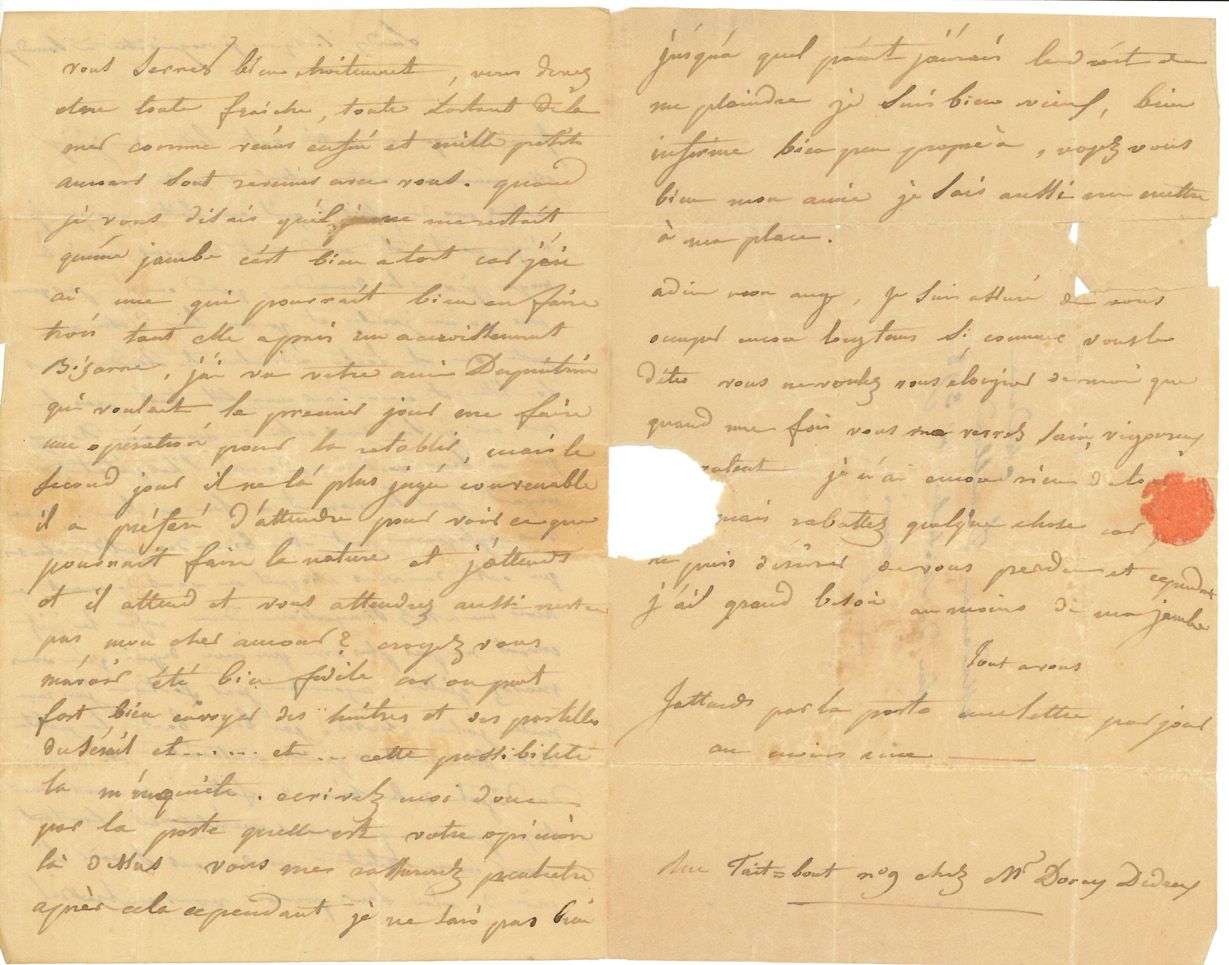 vous serrez bien étroitement, vous devez
être toute fraiche, toute sortant de la
mer comme vénus enfin et mille petits
amours sont venus avec vous. quand
je vous disais qu'il ne me restait
qu'une jambe c'est bien à tort car j'en
ai une qui pourrait bien en faire
trois tant elle a pris un accroissement
Bizarre, j'ai vu votre ami Dupuitrin
qui voulait le premier jour me faire
une opération pour la rétablir, mais le
second jour il ne l'a plus jugée convenable
il a préféré d'attendre pour voir ce que
pourrait faire la nature et j'attends
et il attend et vous attendrez aussi n'est ce
pas mon cher amour? croyez vous
m'avoir été bien fidèle car on peut
fort bien envoyer des huitres et des pastilles
du sérail et...... et... cette possibilité
la m'inquiète. ecrivez moi donc
par la poste quelle est votre opinion
la dessus vous me rassurerez peutetre
après cela cependant je ne sais pas bien
jusqu'a quel point j'aurais le droit de
me plaindre je suis bien vieux, bien
infirme bien peu propre à, voyez vous
bien mon amie je sais aussi me mettre
à ma place.
adieu mon ange, je suis assuré de vous
occuper encore longtems si comme vous le
dites vous ne voulez vous éloigner de moi que
quand une fois vous me verrez sain, vigoureux
je n'ai encore rien de
mais rabattez quelque chose car
ne puis désirer de vous perdre et cependant
j'ai grand besoin au moins de ma jambe
Tout a vous
J'attends par la poste une lettre par jour
au moins une
Rue Tait=bout n° 9 chez Mr